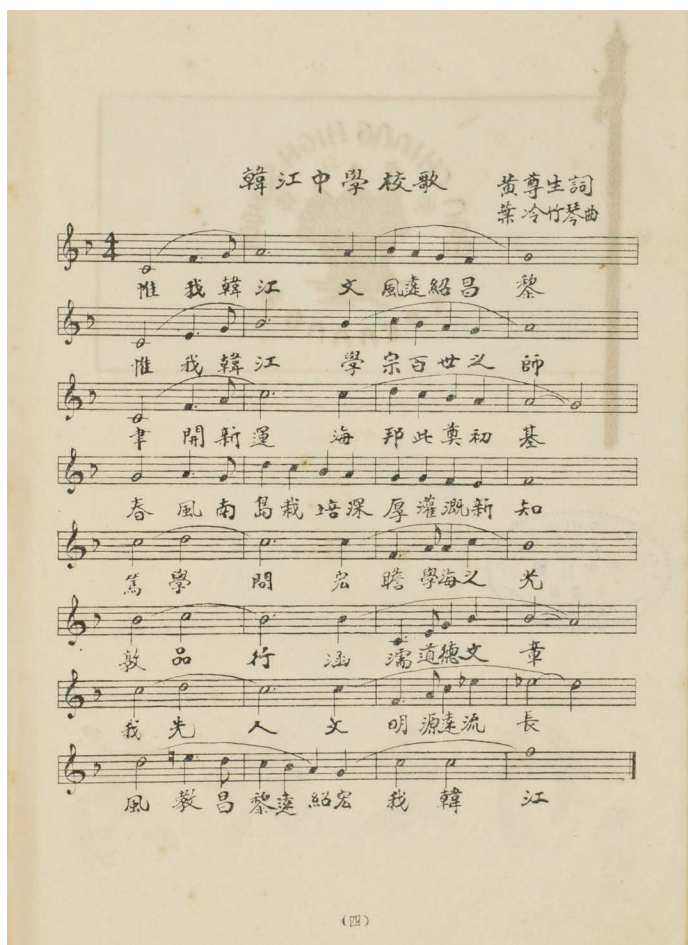 韓江中學校歌
黃尊生詞
葉冷竹琴曲
惟我韓江文風遠紹昌黎
惟我韓江學宗百世之師
聿開新運海邦此奠初基
春風南島栽培深厚灌溉新知
篤學問宏瞻學海之光
敦品行涵濡道德文章
我先人文明源遠流長
風教昌黎遠紹宏我韓江
(四)